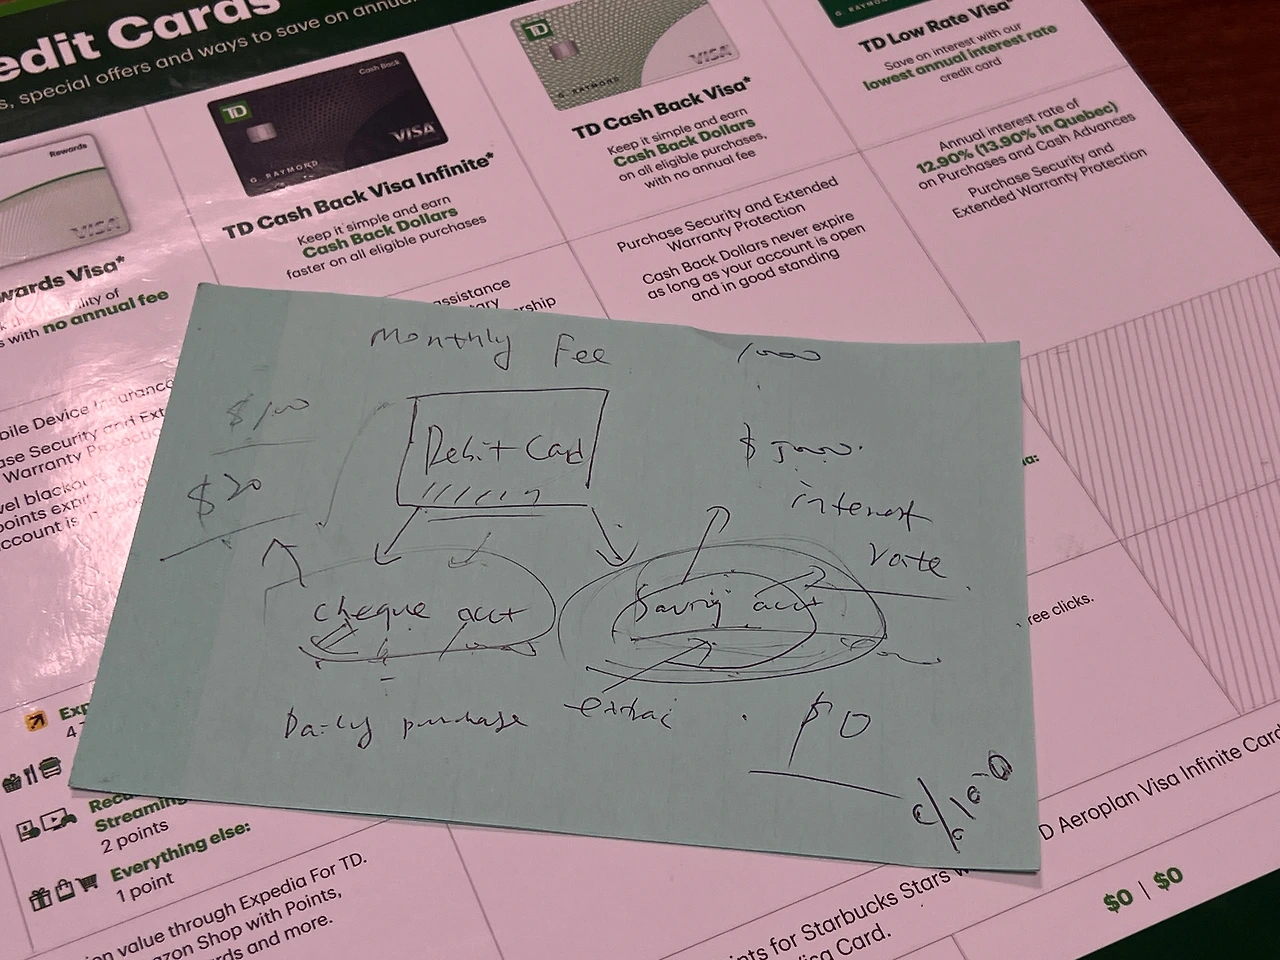 edit Cards
s, special offers and ways to save on annu
Rewards
VISA
wards Visa*
lity of
s with no annual fee
TD
Cash Back
VISA
G. RAYMOND
TD Cash Back Visa Infinite*
Keep it simple and earn
Cash Back Dollars
faster on all eligible purchases
TD
VISA
G. RAYMOND
TD Cash Back Visa*
Keep it simple and earn
Cash Back Dollars
on all eligible purchases,
with no annual fee
Purchase Security and Extended
Warranty Protection
Cash Back Dollars never expire
as long as your account is open
and in good standing
G. RAYMOND
TD Low Rate Visa*
Save on interest with our
lowest annual interest rate
credit card
Annual interest rate of
12.90% (13.90% in Quebec)
on Purchases and Cash Advances
Purchase Security and
Extended Warranty Protection
ssistance
ership
Monthly Fee 1000
$100
Debit Card
$20
$5000.
interest
rate
Cheque acct
Saving acct
Daily purchase
$0
bile Device Insuranc
ase Security and Ext
Warranty Protecti
vel blacko
points expi
ccount is
Exp
4
Recu
Streaming
2 points
Everything else:
1 point
on value through Expedia For TD.
zon Shop with Points,
rds and more.
ree clicks.
D Aeroplan Visa Infinite Card
nts for Starbucks Stars w
isa Card.
$0 | $0